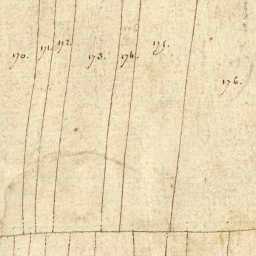 170. 171. 172. 173. 174. 175. 176.